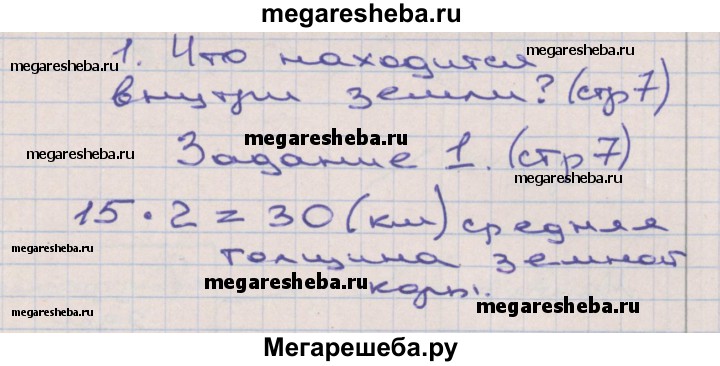 megaresheba.ru
1. Что находится
megaresheba.ru
megaresheba.ru
внутри земли? (стр 7)
megaresheba.ru
megaresheba.ru
Задание 1. (стр 7)
megaresheba.ru
megaresheba.ru
15 · 2 = 30 (км) средняя
megaresheba.ru
толщина земной
megaresheba.ru
коры.
megaresheba.ru
megaresheba.ru
Мегарешеба.ру